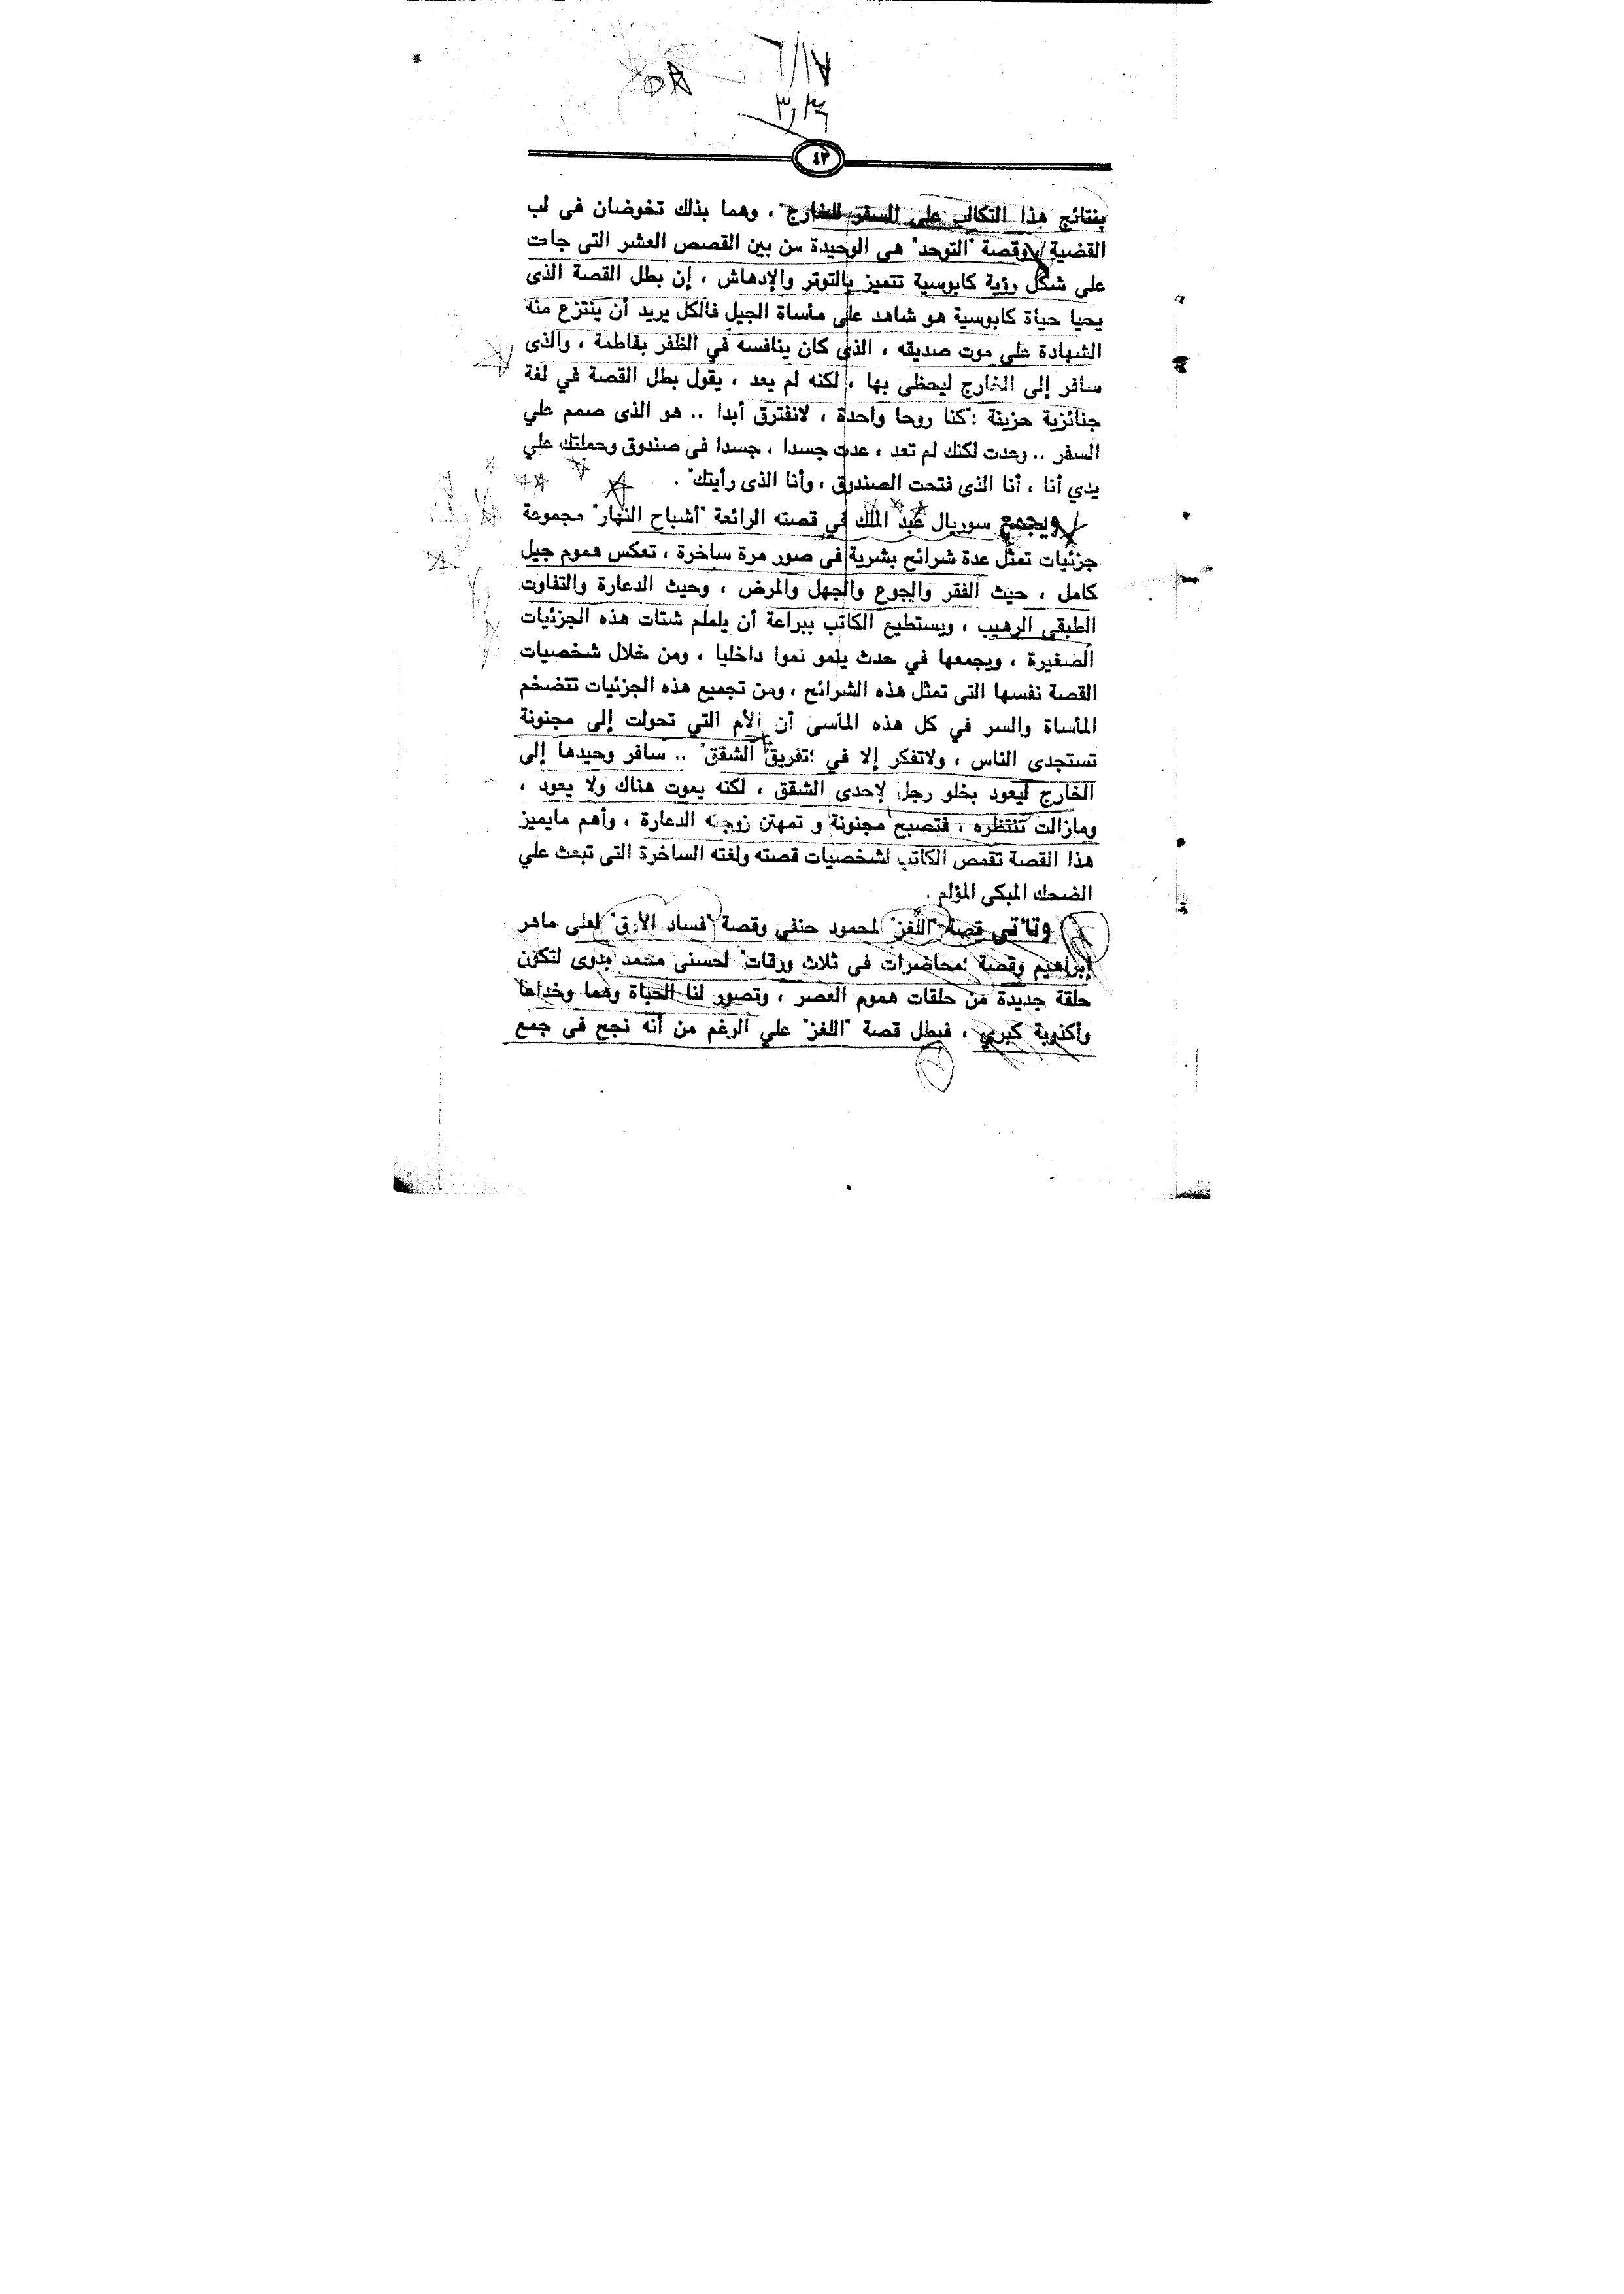 ٦/١٧
٣,٣٤
٥٨
٤٣
بنتائج هذا التكالب على السفر للخارج" ، وهما بذلك تخوضان فى لب
القضية وقصة "التوحد" هى الوحيدة من بين القصص العشر التى جاءت
على شكل رؤية كابوسية تتميز بالتوتر والإدهاش ، إن بطل القصة الذى
يحيا حياة كابوسية هو شاهد على مأساة الجيل فالكل يريد أن ينتزع منه
الشهادة على موت صديقه ، الذى كان ينافسه في الظفر بفاطمة ، والذى
سافر إلى الخارج ليحظى بها ، لكنه لم يعد ، يقول بطل القصة في لغة
جنائزية حزينة :"كنا روحا واحدة ، لانفترق أبدا .. هو الذى صمم علي
السفر .. وعدت لكنك لم تعد ، عدت جسدا ، جسدا فى صندوق وحملتك علي
يدي أنا ، أنا الذى فتحت الصندوق ، وأنا الذى رأيتك" .
ويجمع سوريال عبد الملك في قصته الرائعة "أشباح النهار" مجموعة
جزئيات تمثل عدة شرائح بشرية فى صور مرة ساخرة ، تعكس هموم جيل
كامل ، حيث الفقر والجوع والجهل والمرض ، وحيث الدعارة والتفاوت
الطبقى الرهيب ، ويستطيع الكاتب ببراعة أن يلملم شتات هذه الجزئيات
الصغيرة ، ويجمعها في حدث ينمو نموا داخليا ، ومن خلال شخصيات
القصة نفسها التى تمثل هذه الشرائح ، ومن تجميع هذه الجزئيات تتضخم
المأساة والسر في كل هذه المآسى أن الأم التي تحولت إلى مجنونة
تستجدى الناس ، ولاتفكر إلا في "تفريق الشقق" .. سافر وحيدها إلى
الخارج ليعود بخلو رجل لإحدى الشقق ، لكنه يموت هناك ولا يعود ،
ومازالت تنتظره ، فتصبح مجنونة و تمهتن زوجته الدعارة ، وأهم مايميز
هذا القصة تقمص الكاتب لشخصيات قصته ولغته الساخرة التى تبعث علي
الضحك المبكى المؤلم .
وتأتى قصة "اللغز" لمحمود حنفي وقصة "فساد الأرق" لعلى ماهر
إبراهيم وقصة "محاضرات فى ثلاث ورقات" لحسنى محمد بدوى لتكون
حلقة جديدة من حلقات هموم العصر ، وتصور لنا الحياة وهما وخداعا
وأكذوبة كبري ، فبطل قصة "اللغز" علي الرغم من أنه نجح فى جمع